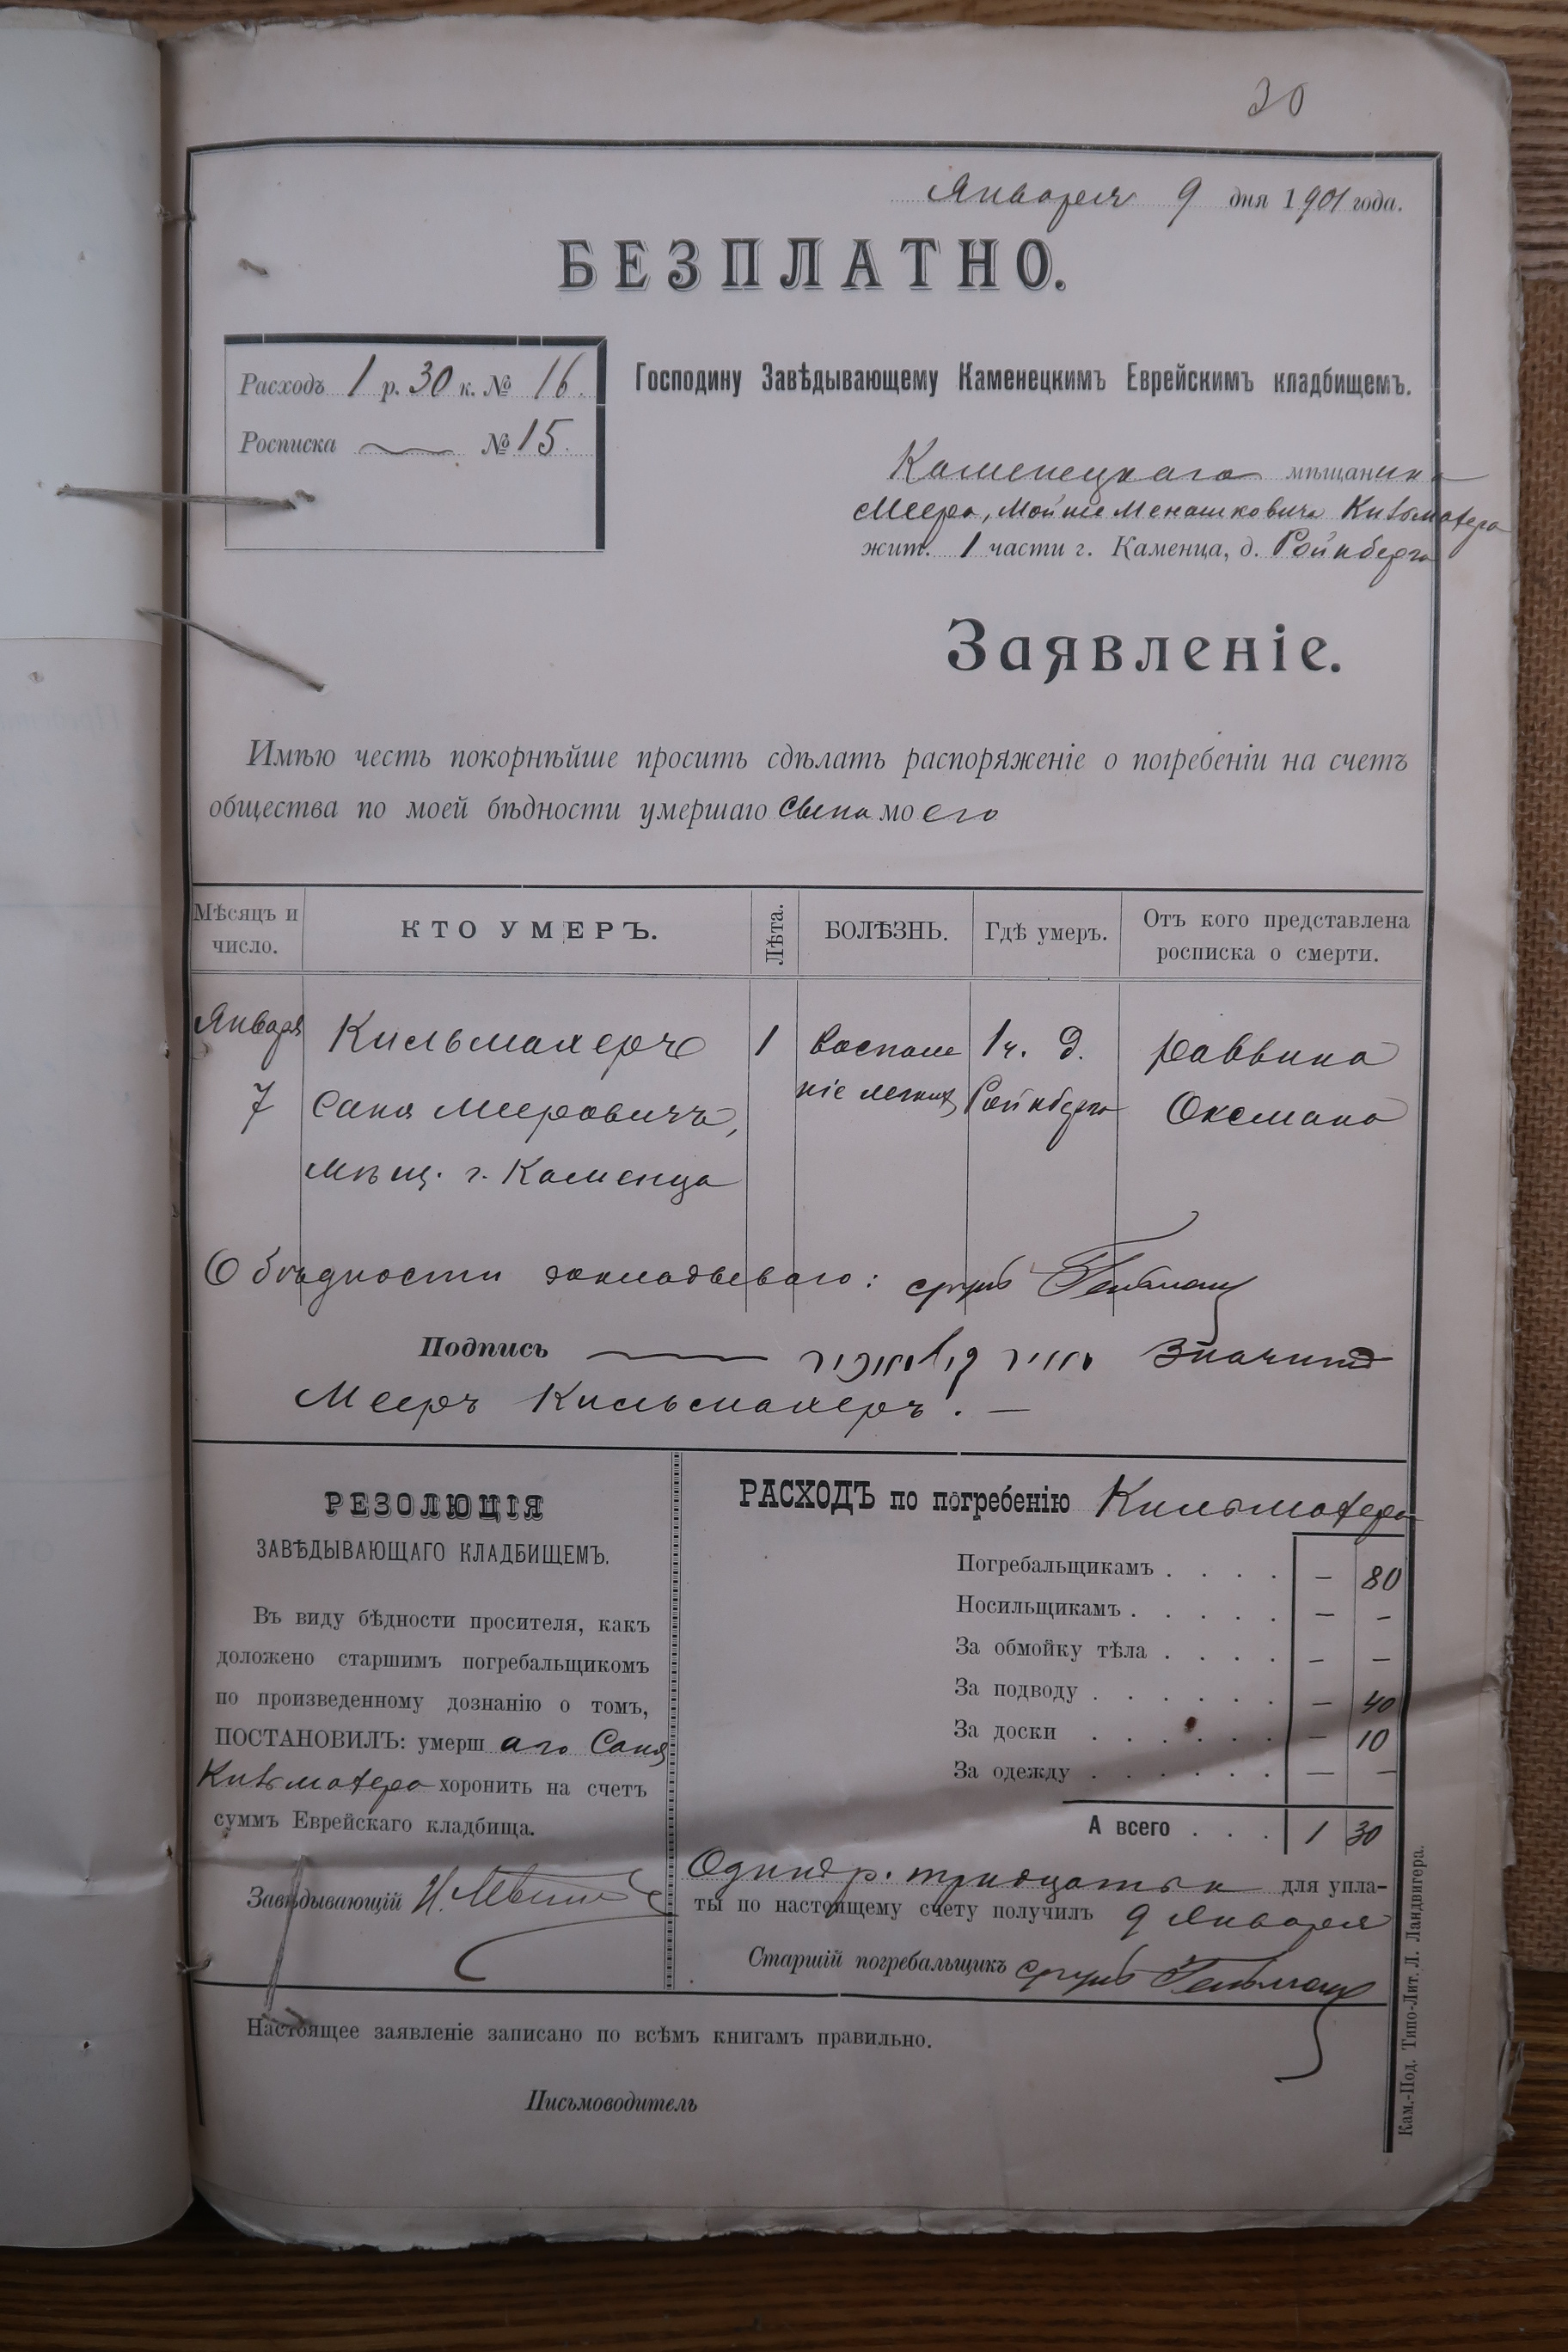 20
Января 9 дня 1901 года.
БЕЗПЛАТНО.
Расходъ 1 р. 30 к. № 16.
Росписка № 15.
Господину Завѣдывающему Каменецкимъ Еврейскимъ кладбищемъ.
Каменецкаго мѣщанина
Меера, Мойше Менашковича Кильмахера
жит. 1 части г. Каменца, д. Ройнберга
Заявленіе.
Имѣю честь покорнѣйше просить сдѣлать распоряженіе о погребеніи на счетъ
общества по моей бѣдности умершаго сына моего
Мѣсяцъ и число.
КТО УМЕРЪ.
Лѣта.
БОЛѢЗНЬ.
Гдѣ умеръ.
Отъ кого представлена росписка о смерти.
Января Кильмахеръ 1 Воспале 1 ч. д. раввина
7 Саня Мееровичъ, ніе легкихъ Ройнберга Оксмана
мѣщ. г. Каменца
О бѣдности докладываю: сруль Гельман
Подпись — מאיר קילמאכער значитъ
Мееръ Кильмахеръ. —
РЕЗОЛЮЦІЯ
ЗАВѢДЫВАЮЩАГО КЛАДБИЩЕМЪ.
Въ виду бѣдности просителя, какъ
доложено старшимъ погребальщикомъ
по произведенному дознанію о томъ,
ПОСТАНОВИЛЪ: умершаго Саня
Кильмахера хоронить на счетъ
суммъ Еврейскаго кладбища.
Завѣдывающій
РАСХОДЪ по погребенію Кильмахера
Погребальщикамъ . . . . — 80
Носильщикамъ . . . . . — –
За обмойку тѣла . . . . – –
За подводу . . . . . . — 40
За доски . . . . . . — 10
За одежду . . . . . . — —
А всего . . . 1 30
Одинъ р. тридцать к для упла-
ты по настоящему счету получилъ 9 Января
Старшій погребальщикъ сруль Гельман
Настоящее заявленіе записано по всѣмъ книгамъ правильно.
Письмоводитель
Кам.-Под. Типо-Лит. Л. Ландвигера.